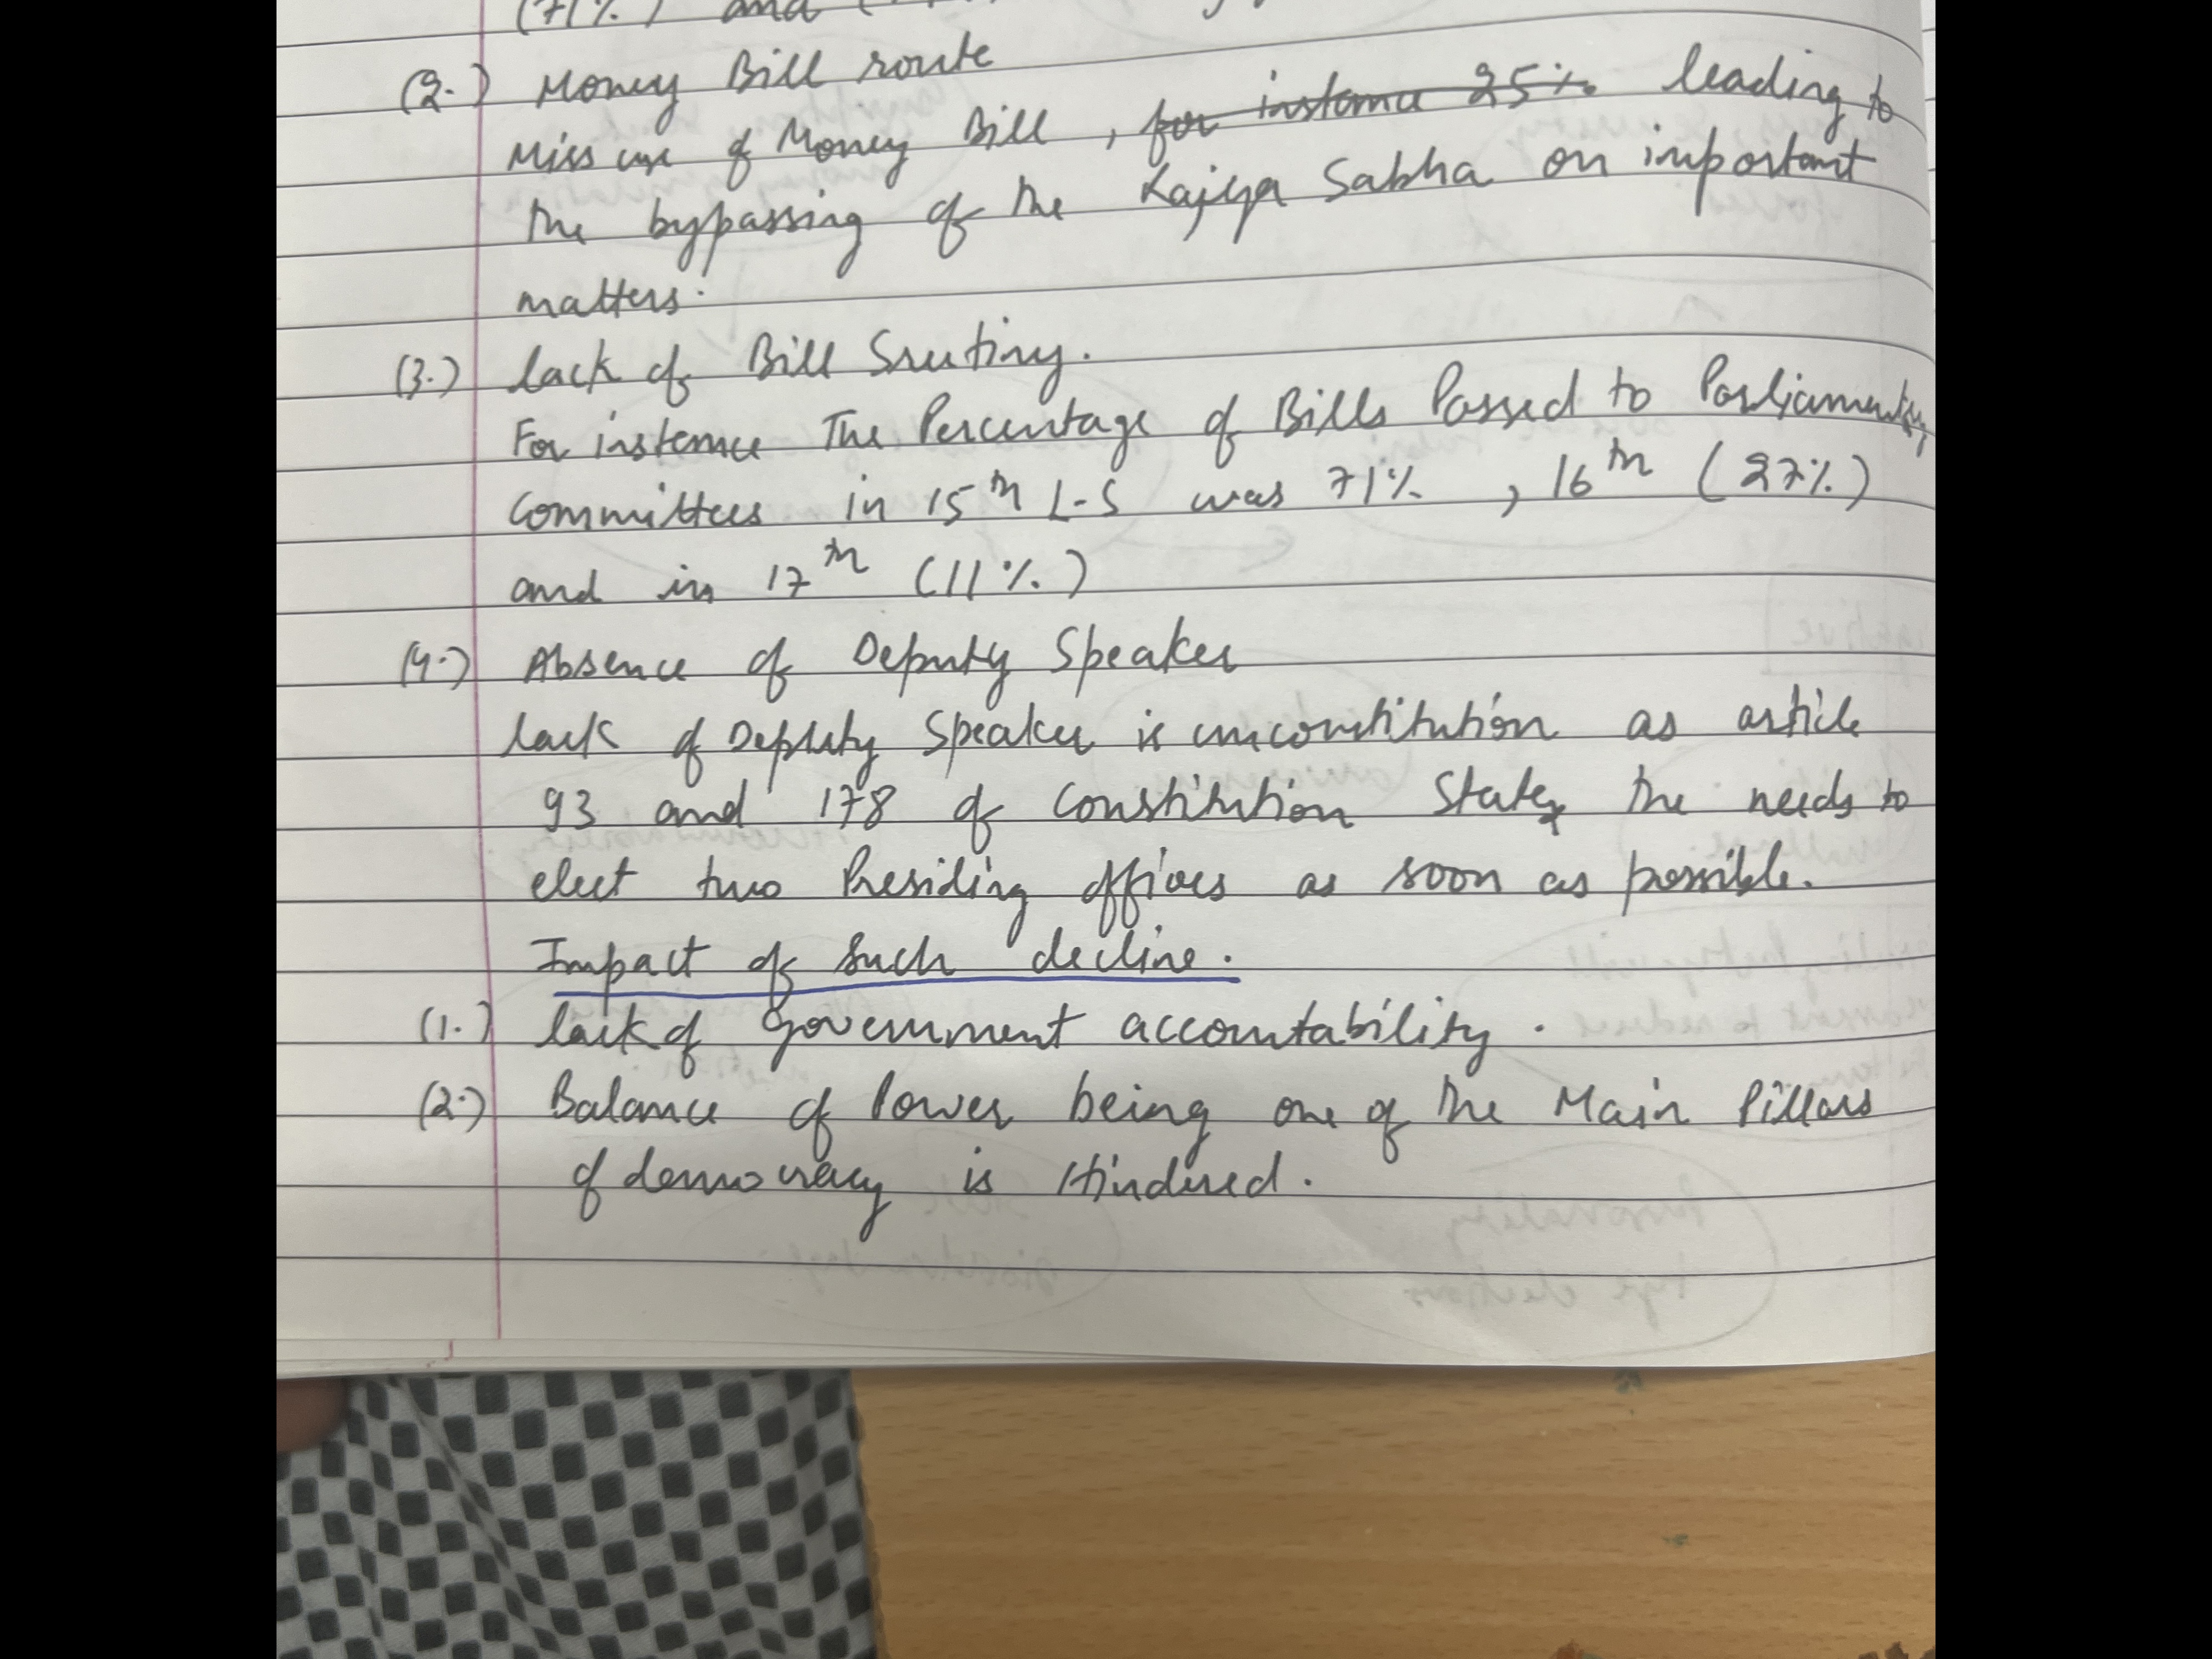 (71%) and
(2.) Money Bill route
Miss use of Money Bill, for instance 25% leading to
the bypassing of the Rajya Sabha on important
matters.
(3.) lack of Bill Srutiny.
For instance The Percentage of Bills Passed to Parliamentary
Committees in 15th L-S was 71%, 16th (27%)
and in 17th (11%)
(4.) Absence of Deputy Speaker
lack of Deputy Speaker is unconstitution as article
93 and 178 of Constitution States the needs to
elect two Presiding offices as soon as possible.
Impact of such decline.
(1.) lack of Government accountability.
(2.) Balance of Power being one of the Main Pillars
of democracy is Hindered.